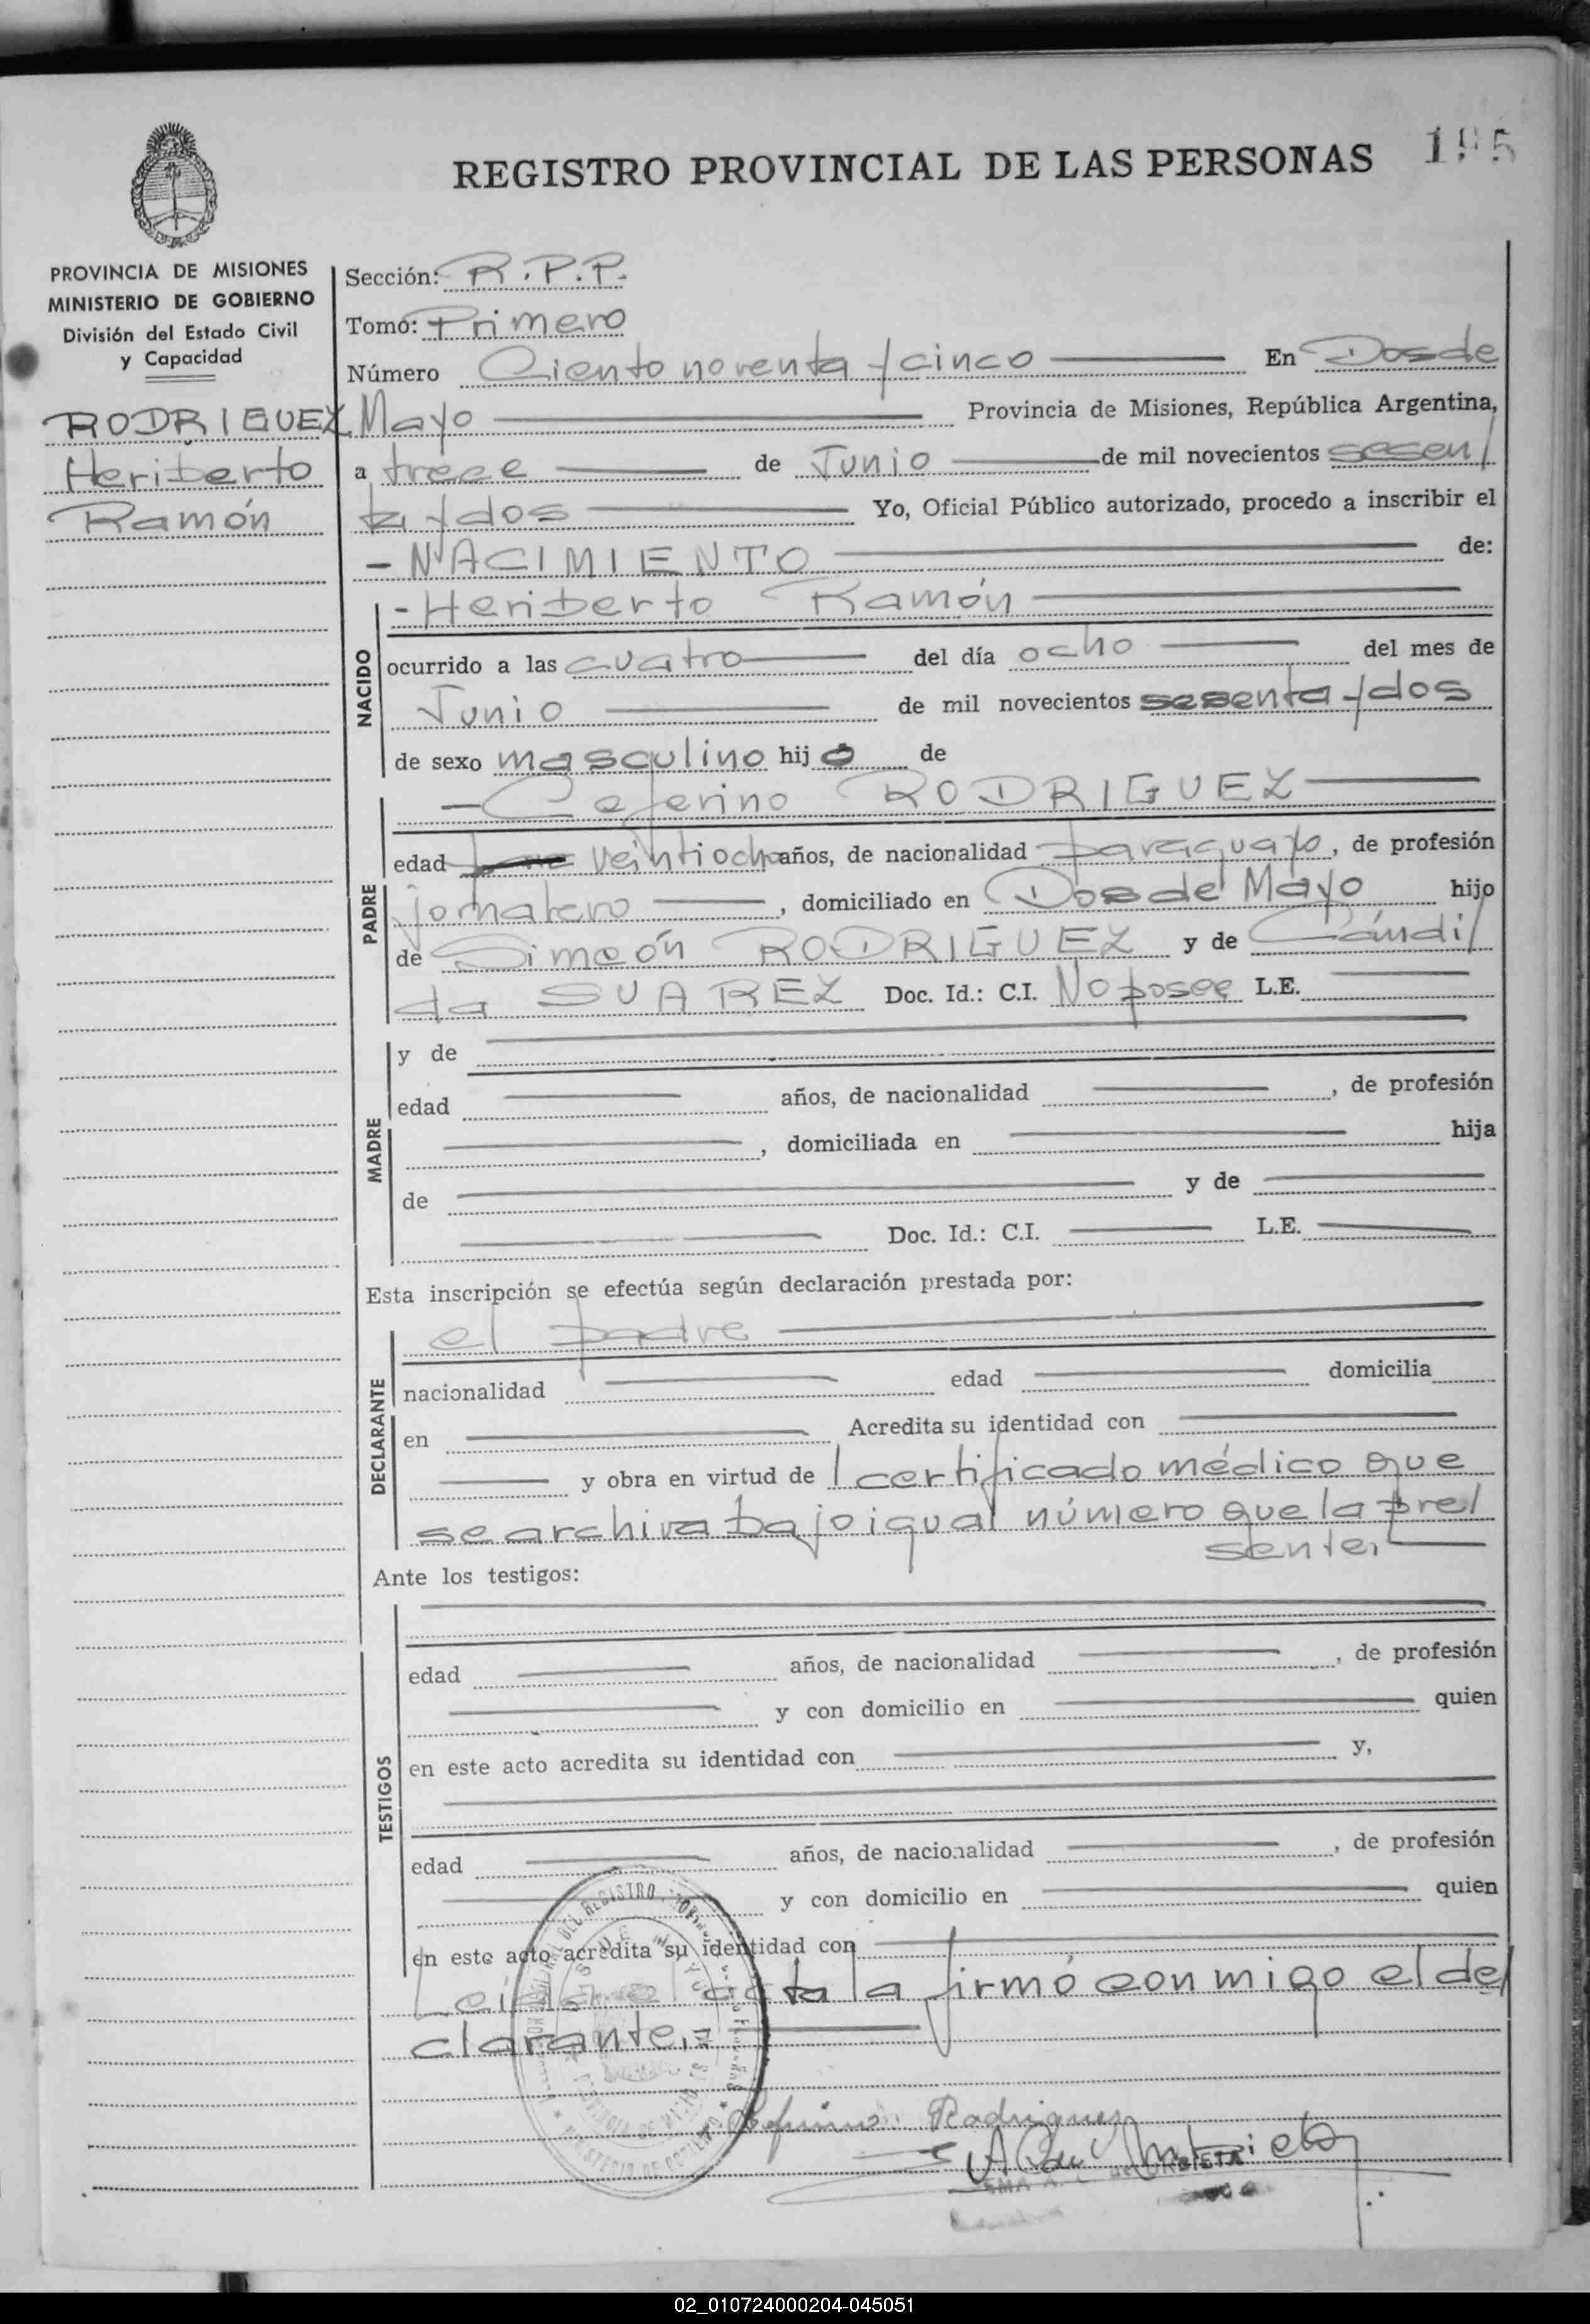 REGISTRO PROVINCIAL DE LAS PERSONAS 195
PROVINCIA DE MISIONES
MINISTERIO DE GOBIERNO
División del Estado Civil
y Capacidad
RODRIGUEZ
Heriberto
Ramón
Sección: R.P.P.
Tomo: Primero
Número Ciento noventa y cinco En Dos de
Mayo Provincia de Misiones, República Argentina,
a trece de Junio de mil novecientos sesen/
ta y dos Yo, Oficial Público autorizado, procedo a inscribir el
- NACIMIENTO de:
NACIDO
- Heriberto Ramón
ocurrido a las cuatro del día ocho del mes de
Junio de mil novecientos sesenta y dos
de sexo masculino hijo de
PADRE
- Ceferino RODRIGUEZ
edad veintiocho años, de nacionalidad paraguayo, de profesión
jornalero, domiciliado en Dos de Mayo hijo
de Simeón RODRIGUEZ y de Cándi/
da SUAREZ Doc. Id.: C.I. No posee L.E.
MADRE
y de
edad años, de nacionalidad , de profesión
, domiciliada en hija
de y de
Doc. Id.: C.I. L.E.
Esta inscripción se efectúa según declaración prestada por:
DECLARANTE
el padre
nacionalidad edad domicilia
en Acredita su identidad con
y obra en virtud de / certificado médico que
se archiva bajo igual número que la pre/
sente.
Ante los testigos:
TESTIGOS
edad años, de nacionalidad , de profesión
y con domicilio en quien
en este acto acredita su identidad con y,
edad años, de nacionalidad , de profesión
y con domicilio en quien
en este acto acredita su identidad con
Leída el acta la firmó conmigo el de/
clarante.
Rodriguez
02_010724000204-045051